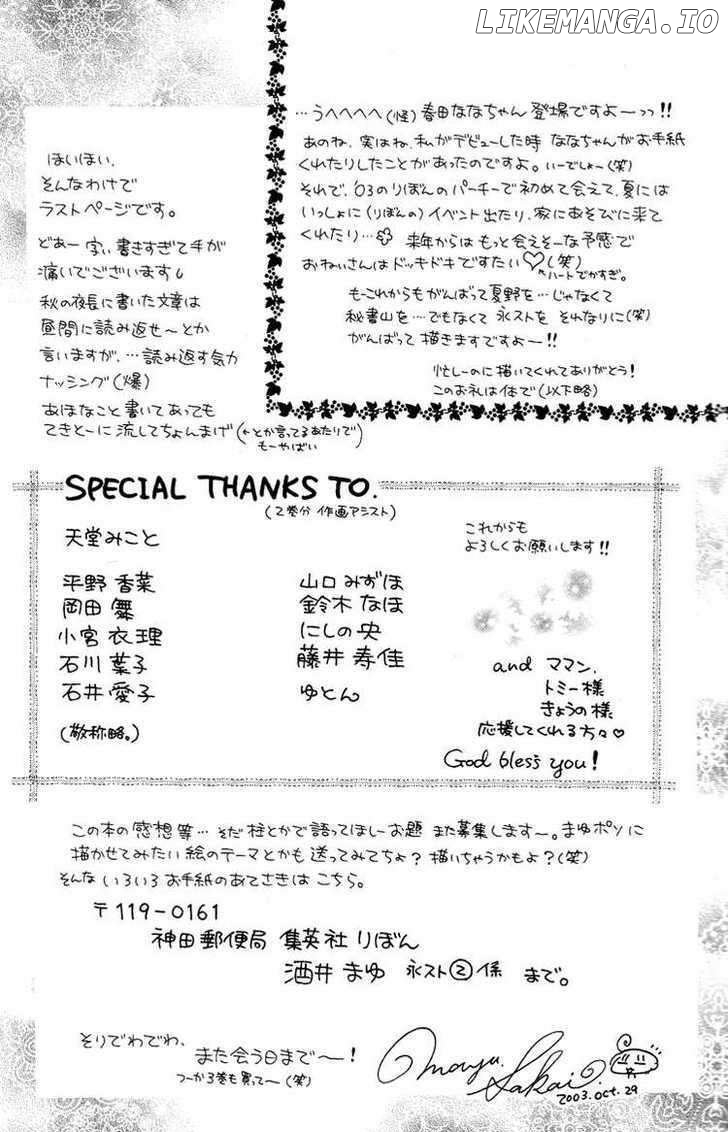 LIKEMANGA.IO
…うへへへへ(怪)春田ななちゃん 登場ですよーっっ!!
あのね、実はね、私がデビューした時 ななちゃんがお手紙
くれたりしたことがあったのですよ。いーでしょー(笑)
それで、'03のりぼんのパーチーで初めて会えて、夏には
いっしょに(りぼんの)イベント出たり、家にあそびに来て
くれたり…
来年からは もっと会えそーな予感で
おねいさんはドッキドキですたい♡(笑)
ハートでかすぎ。
もーこれからもがんばって夏野を…じゃなくて
秘書山を…でもなくて 永ストを それなりに(笑)
がんばって 描きますですよー!!
忙しーのに描いてくれてありがとう!
このお礼は体で(以下略)
ほいほい、
そんなわけで
ラストページです。
どあー 字い書きすぎて手が
痛いでございます
秋の夜長に書いた文章は
昼間に読み返せ〜とか
言いますが、…読み返す気力
ナッシング(爆)
あほなこと書いてあっても
てきとーに流してちょんまげ
(←とか言ってるあたりで
もーやばい)
SPECIAL THANKS TO.
(2巻分 作画アシスト)
天堂みこと
平野 香菜
岡田 舞
小宮 衣理
石川 葉子
石井 愛子
(敬称略。)
山口 みずほ
鈴木 なほ
にしの 央
藤井 寿佳
ゆとん
これからも
よろしくお願いします!!
and ママン、
トミー様
きょうの様
応援してくれる方々♡
God bless you!
この本の感想等… そだ 柱とかで語ってほしーお題 また募集します〜。まゆポンに
描かせてみたい絵のテーマとかも 送ってみてちょ? 描いちゃうかもよ?(笑)
そんな いろいろ お手紙のあてさきは こちら。
〒119-0161
神田郵便局 集英社 りぼん
酒井 まゆ 永スト②係 まで。
そりでわでわ、
また会う日まで〜!
つーか3巻も買って〜(笑)
Mayu Sakai
2003.oct.29